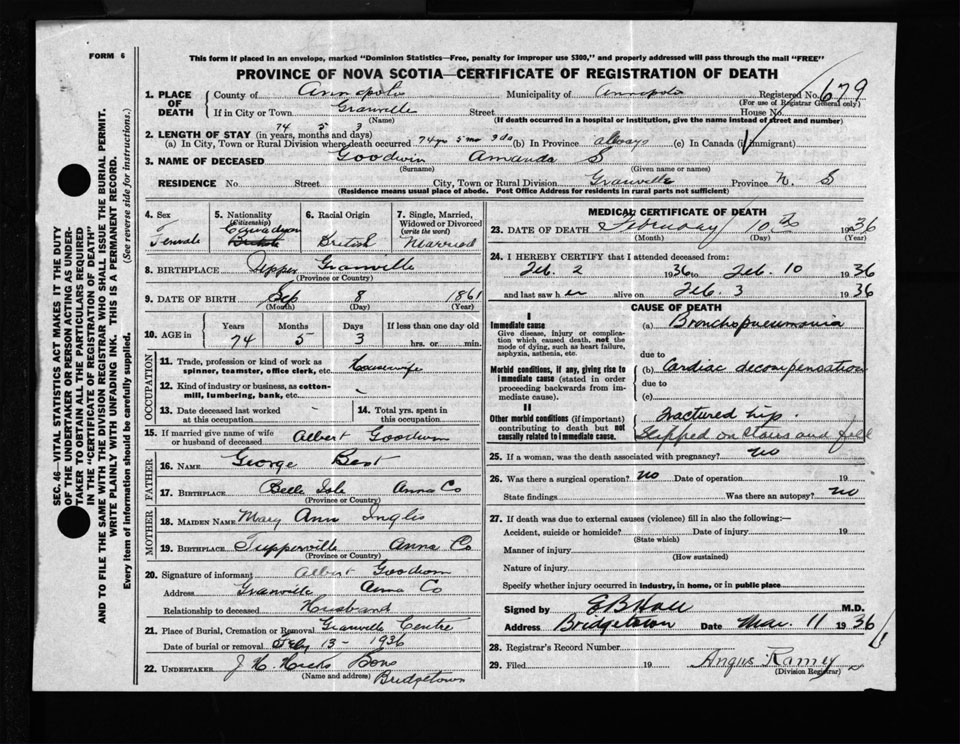 FORM 6
This form if placed in an envelope, marked "Dominion Statistics—Free, penalty for improper use $300," and properly addressed will pass through the mail "FREE"
PROVINCE OF NOVA SCOTIA—CERTIFICATE OF REGISTRATION OF DEATH
SEC. 46—VITAL STATISTICS ACT MAKES IT THE DUTY
OF THE UNDERTAKER OR PERSON ACTING AS UNDER-
TAKER TO OBTAIN ALL THE PARTICULARS REQUIRED
IN THE "CERTIFICATE OF REGISTRATION OF DEATH"
AND TO FILE THE SAME WITH THE DIVISION REGISTRAR WHO SHALL ISSUE THE BURIAL PERMIT.
WRITE PLAINLY WITH UNFADING INK. THIS IS A PERMANENT RECORD.
Every item of information should be carefully supplied. (See reverse side for instructions.)
1. PLACE OF DEATH
County of Annapolis Municipality of Annapolis Registered No. 679
(For use of Registrar General only)
If in City or Town Granville Street House No.
(Name) (If death occurred in a hospital or institution, give the name instead of street and number)
2. LENGTH OF STAY (in years, months and days) 74 5 3
(a) In City, Town or Rural Division where death occurred 74 yrs 5 mo 3 da (b) In Province always (c) In Canada (if immigrant)
3. NAME OF DECEASED Goodwin Amanda S
(Surname) (Given name or names)
RESIDENCE No Street City, Town or Rural Division Granville Province N. S
(Residence means usual place of abode. Post Office Address for residents in rural parts not sufficient)
4. Sex
Female
5. Nationality
(Citizenship)
Canadyon
British
6. Racial Origin
British
7. Single, Married, Widowed or Divorced
(write the word)
Married
8. BIRTHPLACE Upper Granville
(Province or Country)
9. DATE OF BIRTH Sep 8 1861
(Month) (Day) (Year)
10. AGE in Years Months Days If less than one day old
74 5 3 hrs. or min.
OCCUPATION
11. Trade, profession or kind of work as
spinner, teamster, office clerk, etc. Housewife
12. Kind of industry or business, as cotton-
mill, lumbering, bank, etc. -
13. Date deceased last worked
at this occupation -
14. Total yrs. spent in
this occupation
15. If married give name of wife
or husband of deceased Albert Goodwin
FATHER
16. Name George Bent
17. Birthplace Belle Isle Anna Co
(Province or Country)
MOTHER
18. Maiden Name Mary Ann Inglis
19. Birthplace Tupperville Anna Co
(Province or Country)
20. Signature of informant Albert Goodwin
Address Granville Anna Co
Relationship to deceased Husband
21. Place of Burial, Cremation or Removal Granville Centre
Date of burial or removal Feby 13 - 1936
22. UNDERTAKER J. H. Hicks Sons
(Name and address) Bridgetown
MEDICAL CERTIFICATE OF DEATH
23. DATE OF DEATH February 10th 1936
(Month) (Day) (Year)
24. I HEREBY CERTIFY that I attended deceased from:
Feb. 2 1936 to Feb. 10 1936
and last saw her alive on Feb. 3 1936
CAUSE OF DEATH
I
Immediate cause
Give disease, injury or complica-
tion which caused death, not the
mode of dying, such as heart failure,
asphyxia, asthenia, etc.
(a) Bronchopneumonia
due to
Morbid conditions, if any, giving rise to
immediate cause (stated in order
proceeding backwards from im-
mediate cause).
(b) Cardiac decompensation
due to
(c)
II
Other morbid conditions (if important)
contributing to death but not
causally related to immediate cause.
Fractured hip.
Slipped on stairs and fell
25. If a woman, was the death associated with pregnancy? no
26. Was there a surgical operation? no Date of operation 19
State findings Was there an autopsy? no
27. If death was due to external causes (violence) fill in also the following:—
Accident, suicide or homicide? Date of injury 19
(State which)
Manner of injury
(How sustained)
Nature of injury
Specify whether injury occurred in industry, in home, or in public place
Signed by E B Hall M.D.
Address Bridgetown Date Mar. 11 1936
28. Registrar's Record Number
29. Filed 19 Angus Ramey
(Division Registrar)